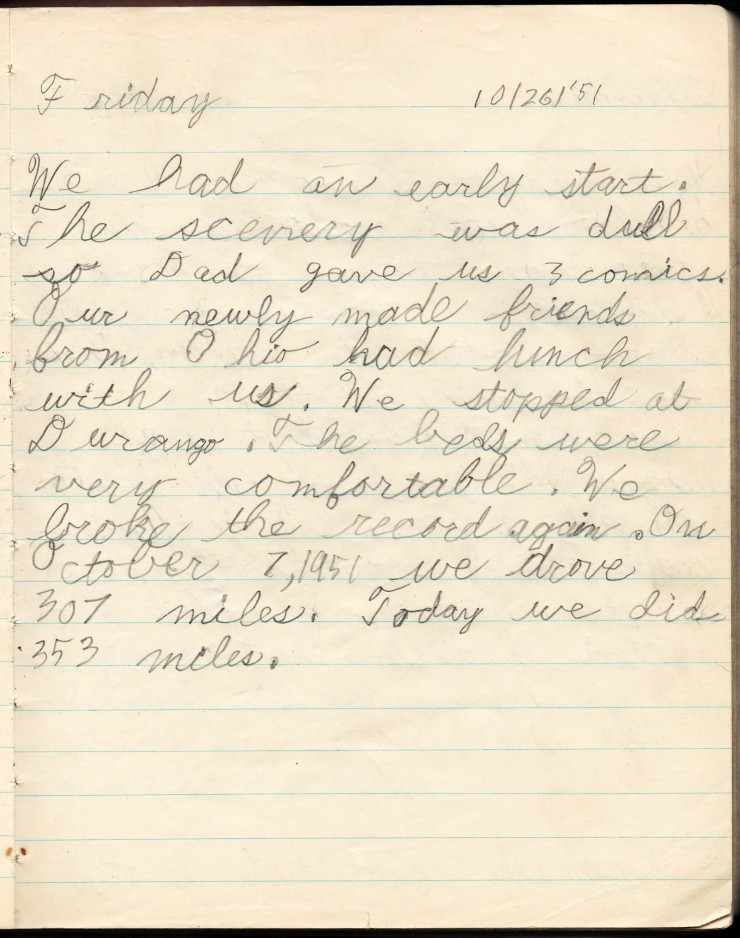 Friday 10/26/'51
We had an early start.
The scenery was dull
so Dad gave us 3 comics.
Our newly made friends
from Ohio had lunch
with us. We stopped at
Durango. The beds were
very comfortable. We
broke the record again. On
October 7, 1951 we drove
307 miles. Today we did
353 miles.